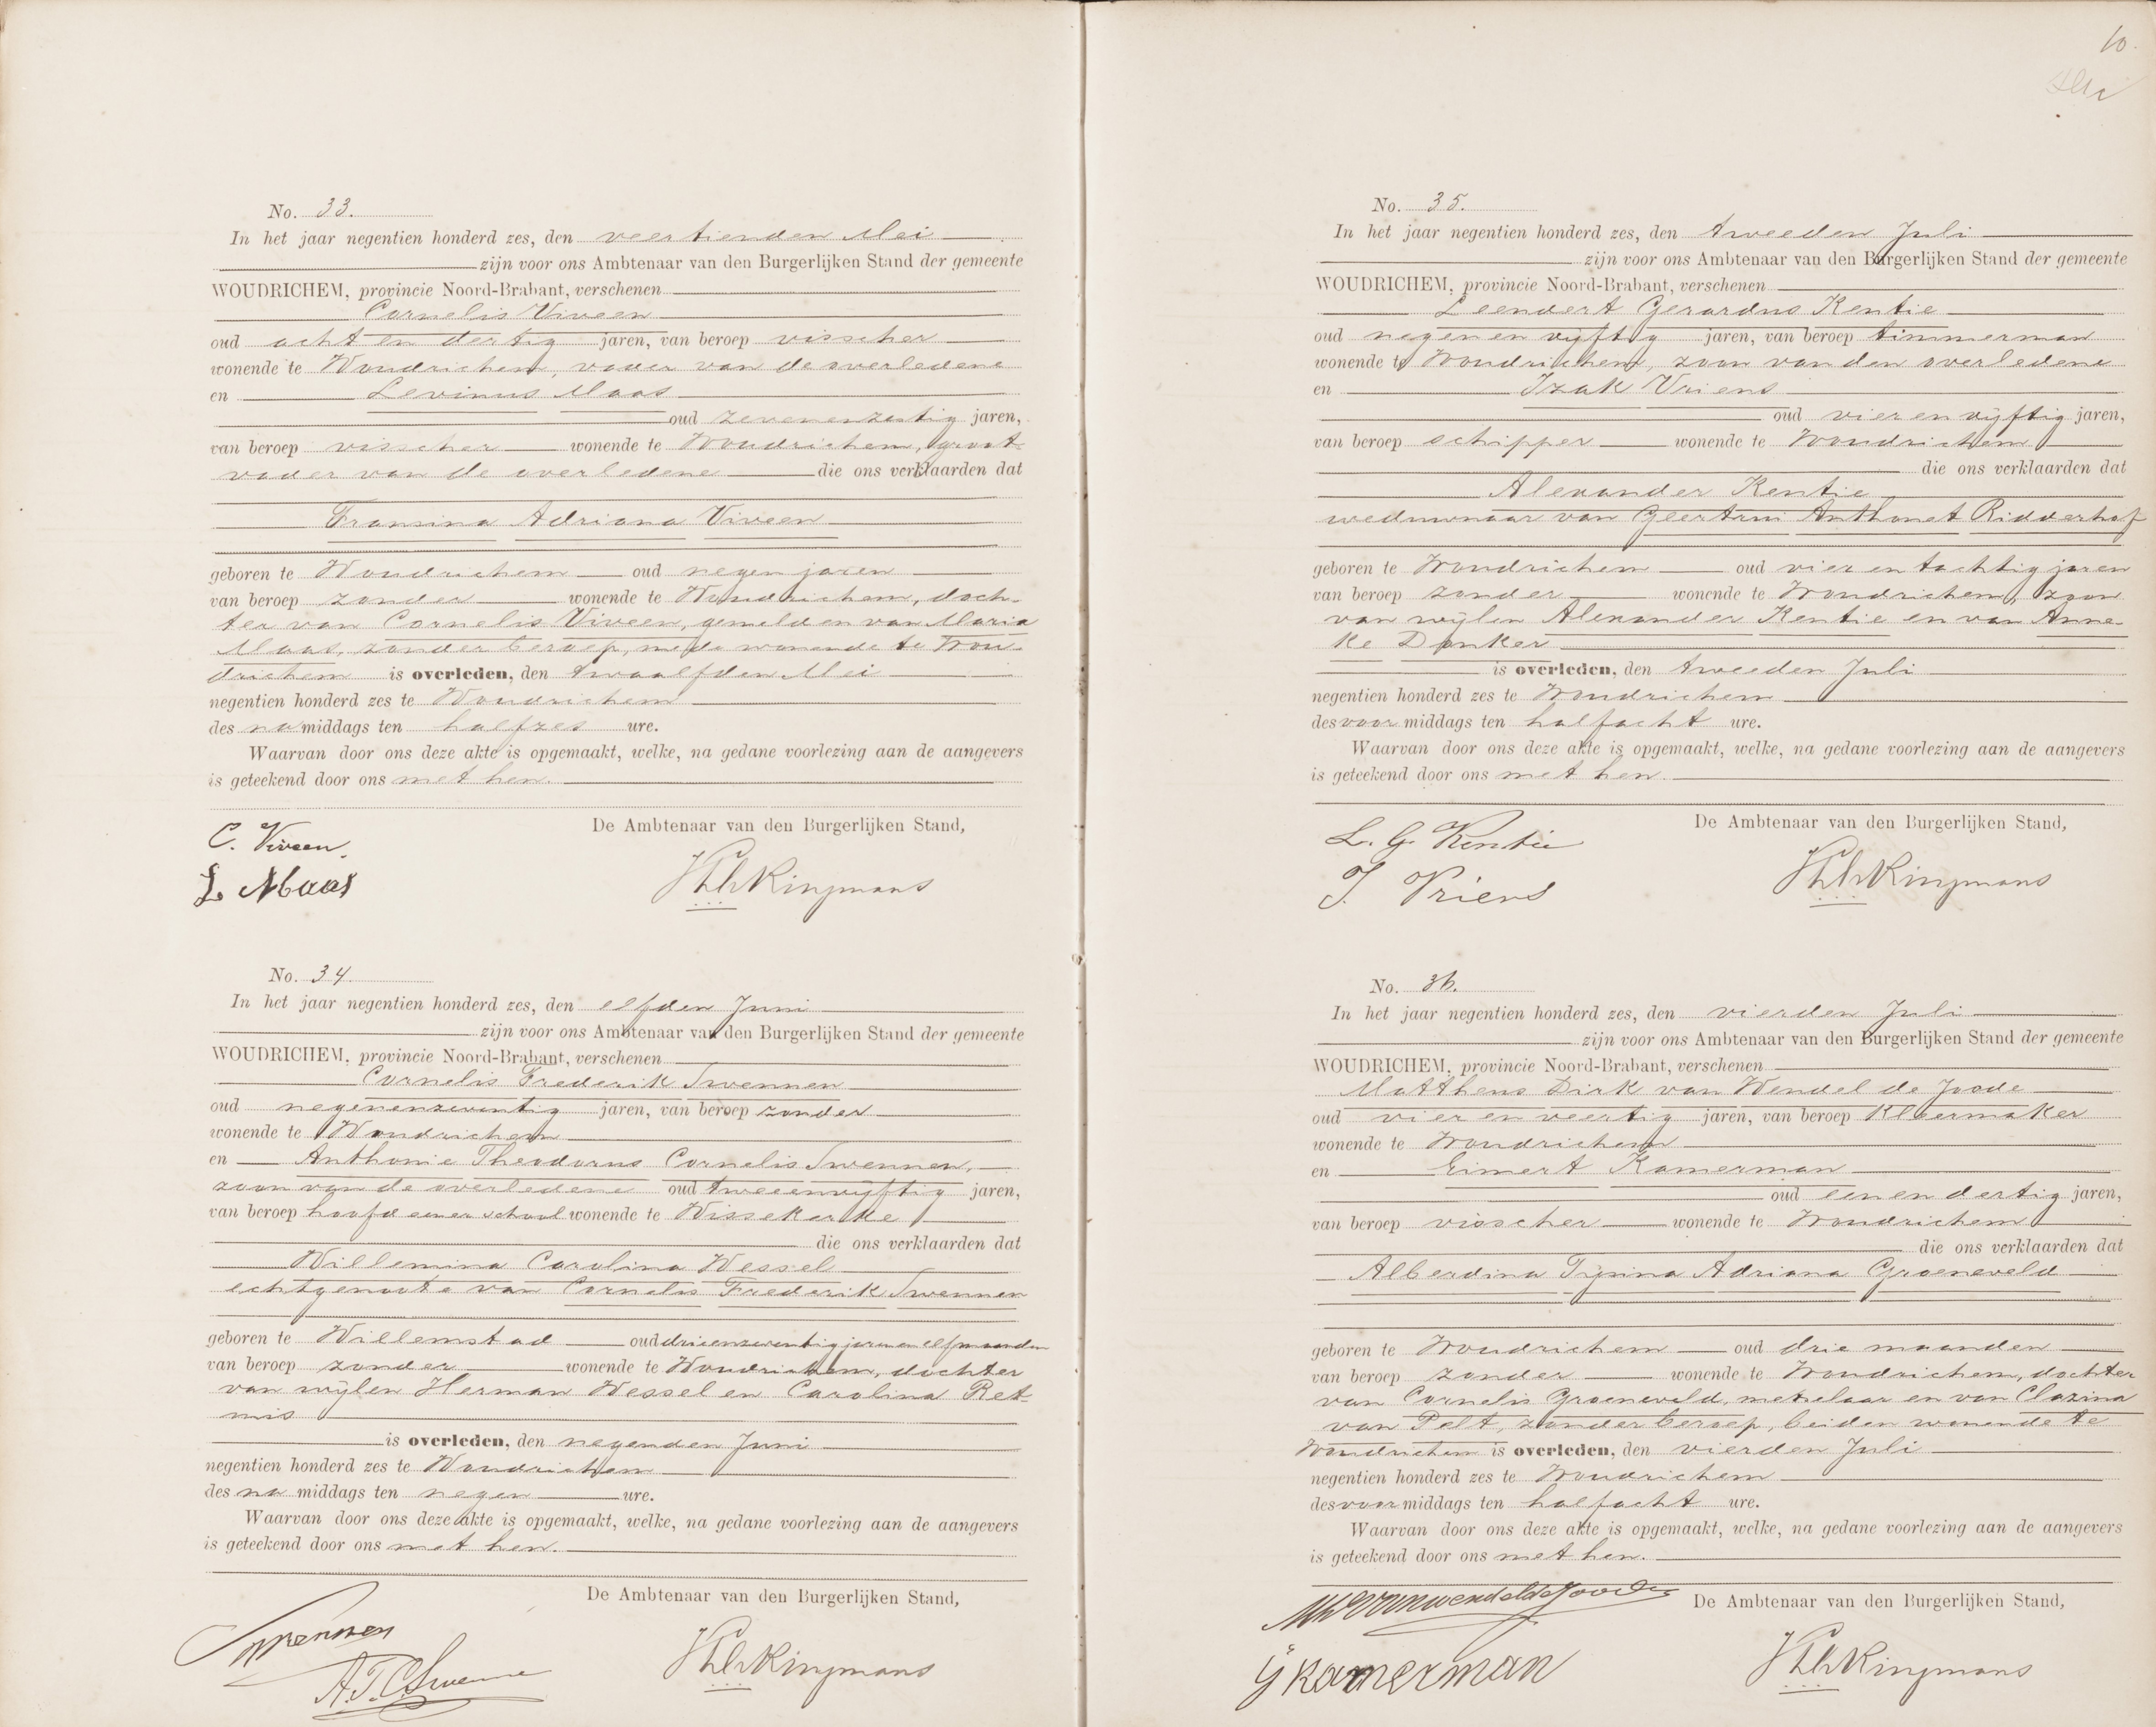 No. 33.
In het jaar negentien honderd zes, den veertienden Mei
zijn voor ons Ambtenaar van den Burgerlijken Stand der gemeente
WOUDRICHEM, provincie Noord-Brabant, verschenen
Cornelis Viveen
oud acht en dertig jaren, van beroep visscher
wonende te Woudrichem, vader van de overledene
en Levinus Maas
oud zevenenzestig jaren,
van beroep visscher wonende te Woudrichem, groot-
vader van de overledene die ons verklaarden dat
Fransina Adriana Viveen
geboren te Woudrichem oud negen jaren
van beroep zonder wonende te Woudrichem, doch-
ter van Cornelis Viveen, gemeld en van Maria
Maas, zonder beroep, mede wonende te Wou-
drichem is overleden, den twaalfden Mei
negentien honderd zes te Woudrichem
des namiddags ten halfzes ure.
Waarvan door ons deze akte is opgemaakt, welke, na gedane voorlezing aan de aangevers
is geteekend door ons met hen.
De Ambtenaar van den Burgerlijken Stand,
C. Viveen.
L Maas
No. 34.
In het jaar negentien honderd zes, den elfden Juni
zijn voor ons Ambtenaar van den Burgerlijken Stand der gemeente
WOUDRICHEM, provincie Noord-Brabant, verschenen
Cornelis Frederik Swennen
oud negenenzeventig jaren, van beroep zonder
wonende te Woudrichem
en Anthonie Theodorus Cornelis Swennen,
zoon van de overledene oud tweeenvijftig jaren,
van beroep hoofd eener school wonende te Wissekerke
die ons verklaarden dat
Willemina Carolina Wessel
echtgenoote van Cornelis Frederik Swennen
geboren te Willemstad oud drieenzeventig jaren en elf maanden
van beroep zonder wonende te Woudrichem, dochter
van wijlen Herman Wessel en Carolina Ret-
mis
is overleden, den negenden Juni
negentien honderd zes te Woudrichem
des na middags ten negen ure.
Waarvan door ons deze akte is opgemaakt, welke, na gedane voorlezing aan de aangevers
is geteekend door ons met hen.
De Ambtenaar van den Burgerlijken Stand,
Swennen
A.T.C. Swenne
10.
Juli
No. 35.
In het jaar negentien honderd zes, den tweeden Juli
zijn voor ons Ambtenaar van den Burgerlijken Stand der gemeente
WOUDRICHEM, provincie Noord-Brabant, verschenen
Leendert Gerardus Kentie
oud negen en vijftig jaren, van beroep timmerman
wonende te Woudrichem, zoon van den overledene
en Izak Vriens
oud vier en vijftig jaren,
van beroep schipper wonende te Woudrichem
die ons verklaarden dat
Alexander Kentie
weduwnaar van Geertrui Anthonet Ridderhof
geboren te Woudrichem oud vier en tachtig jaren
van beroep zonder wonende te Woudrichem, zoon
van wijlen Alexander Kentie en van Anne-
ke Donker
is overleden, den tweeden Juli
negentien honderd zes te Woudrichem
des voor middags ten halfacht ure.
Waarvan door ons deze akte is opgemaakt, welke, na gedane voorlezing aan de aangevers
is geteekend door ons met hen.
De Ambtenaar van den Burgerlijken Stand,
L. G. Kentie
I. Vriens
No. 36.
In het jaar negentien honderd zes, den vierden Juli
zijn voor ons Ambtenaar van den Burgerlijken Stand der gemeente
WOUDRICHEM, provincie Noord-Brabant, verschenen
Mattheus Dirk van Wendel de Joode
oud vier en veertig jaren, van beroep kleermaker
wonende te Woudrichem
en Eimert Kamerman
oud een en dertig jaren,
van beroep visscher wonende te Woudrichem
die ons verklaarden dat
Alberdina Tijsina Adriana Groeneveld
geboren te Woudrichem oud drie maanden
van beroep zonder wonende te Woudrichem, dochter
van Cornelis Groeneveld, metselaar en van Clazina
van Pelt, zonder beroep, beiden wonende te
Woudrichem is overleden, den vierden Juli
negentien honderd zes te Woudrichem
des voor middags ten halfacht ure.
Waarvan door ons deze akte is opgemaakt, welke, na gedane voorlezing aan de aangevers
is geteekend door ons met hen.
De Ambtenaar van den Burgerlijken Stand,
Kamerman